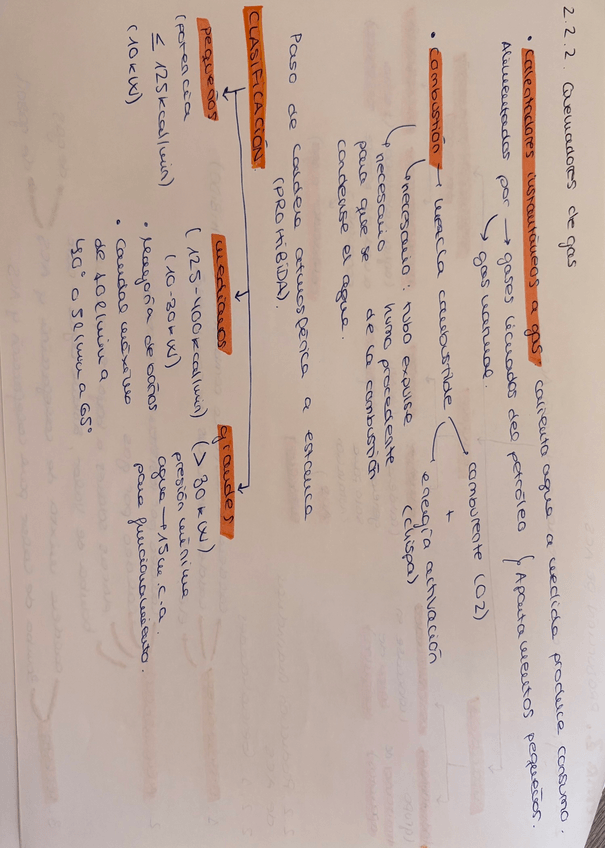 2.2.2. Quemadores de gas
• Calentadores instantáneos a gas. calienta agua a medida produce consumo.
Alimentados por → gases licuados del petróleo { Apartamentos pequeños.
→ gas natural.
• Combustión → mezcla combustible
comburente (O2)
+
energía activación
(chispa)
→ necesario: tubo expulse
humo procedente
de la combustión
→ necesario
para que se
condense el agua.
Paso de caldera atmosférica a estanca
(PROHIBIDA).
CLASIFICACIÓN
pequeños
(potencia
≤ 125 kcal/min)
(10 kW)
medianos
(125-400 kcal/min)
(10-30 kW)
• Mayoría de
• caudal mínimo
de 10 l/min a
40° o 5 l/min a 65°
grandes
(> 30 kW)
presión mínima
agua → 15 m.c.a.
para funcionamiento.